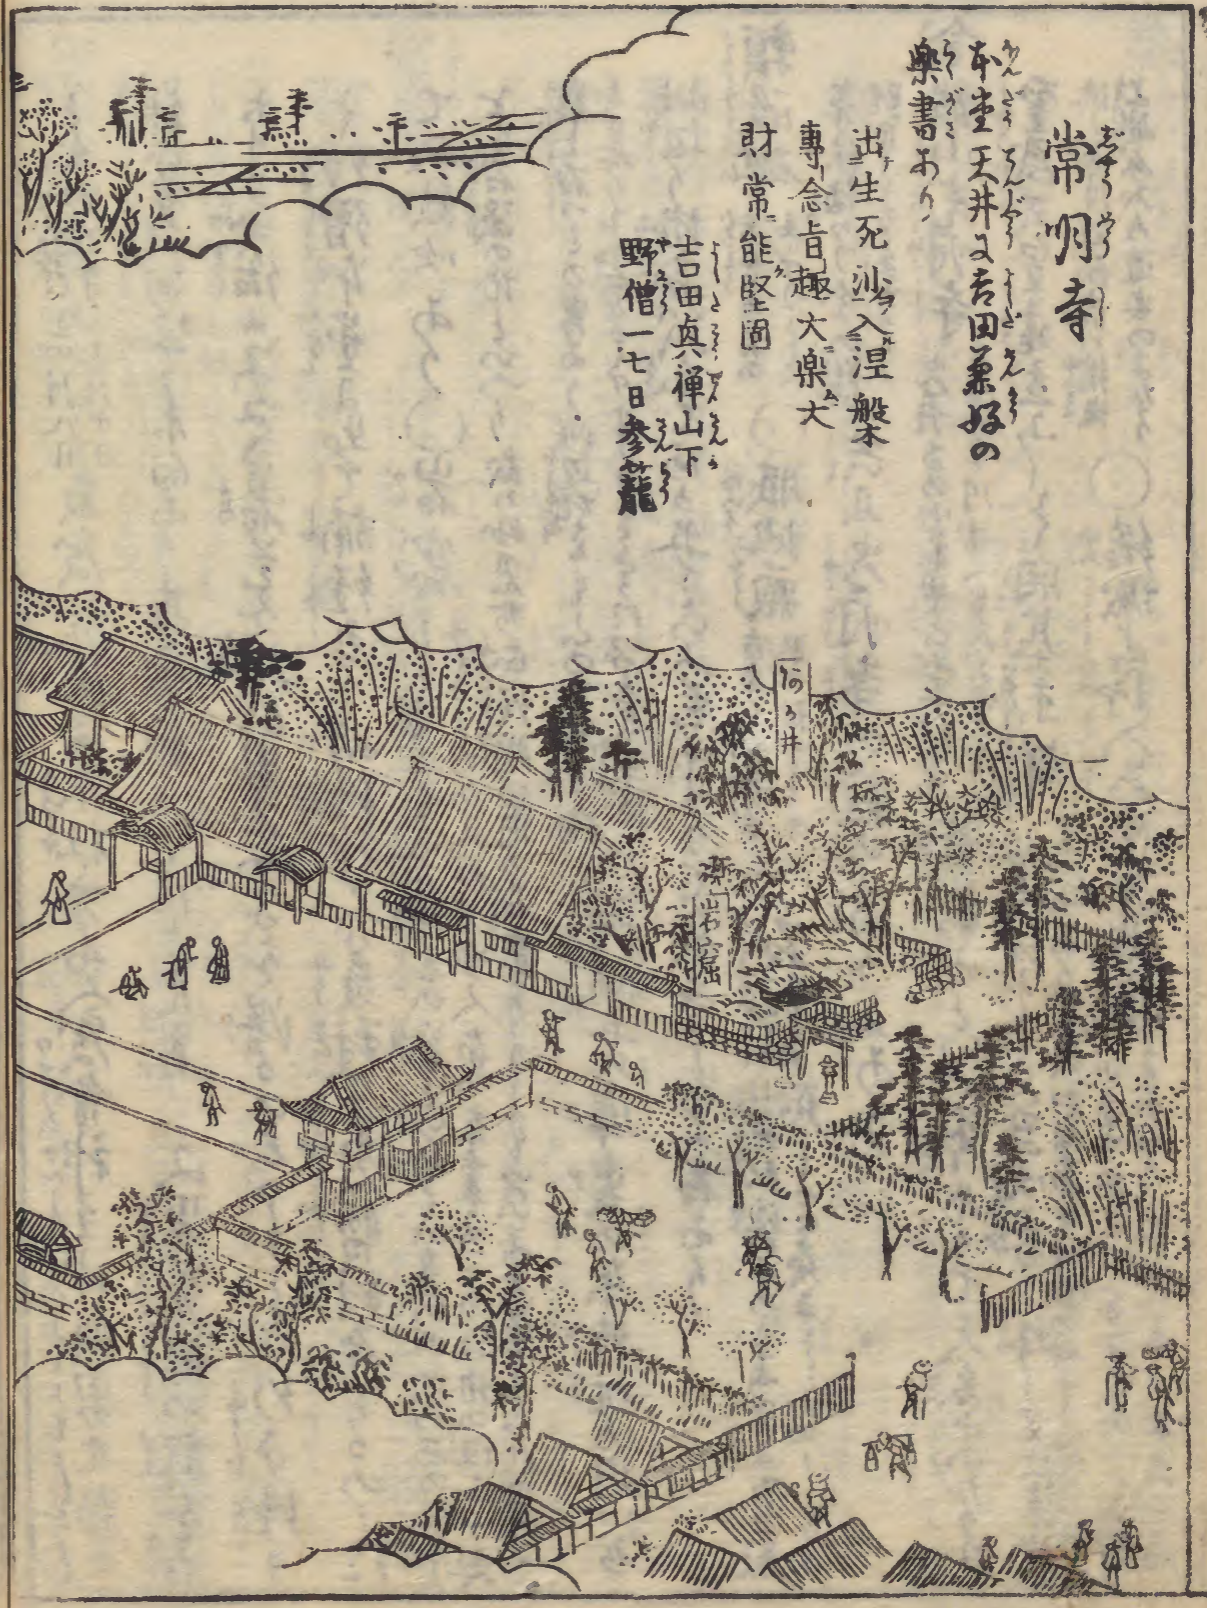 常明寺
本堂天井に吉田兼好の
楽書あり
出生死沙入涅槃
專念旨趣大楽大
財常能堅固
吉田眞禅山下
野僧一七日参籠
岩窟